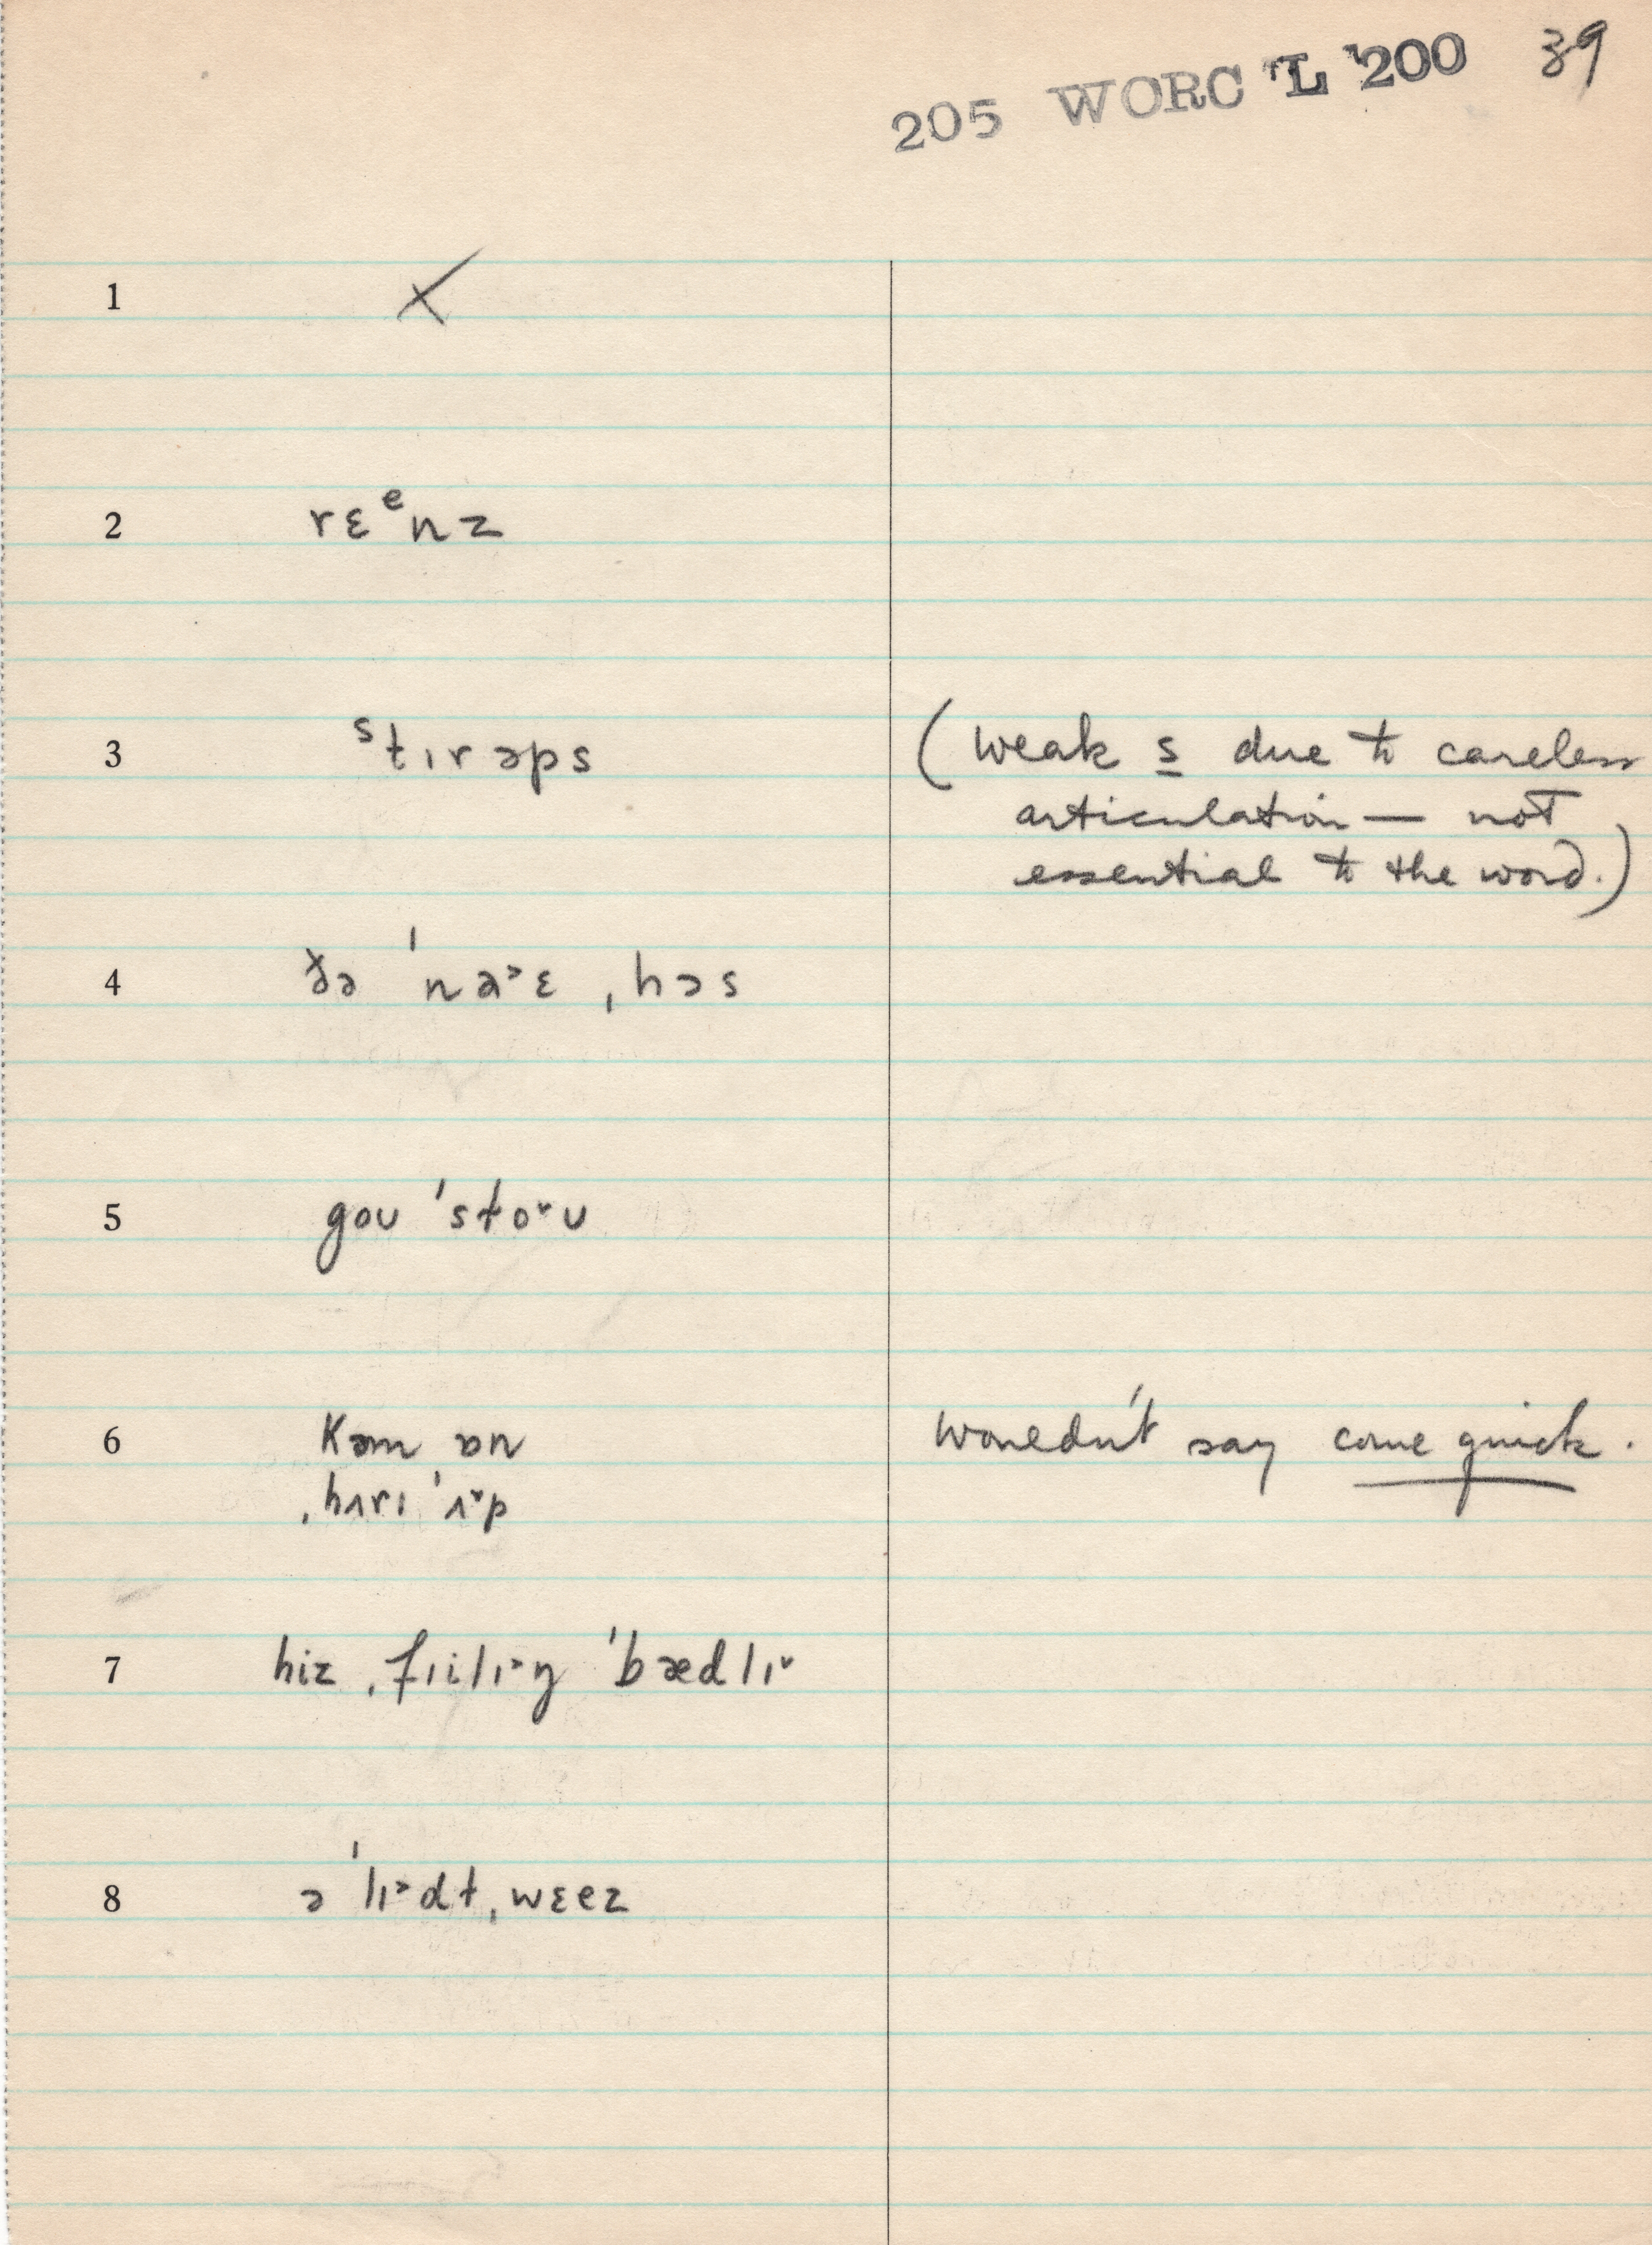 205 WORC L 200 39
1 X
2 rɛᵉnz
3 ˢtɪrəps (weak s due to careless
articulation — not
essential to the word.)
4 ðə ˈna˃ɛ ˌhɔs
5 goʊ ˈsto˅ʊ
6 kəm ɒn wouldn't say come quick.
ˌhʌrɪ ˈʌ˅p
7 hiz ˌfɪilɪ˃ŋ ˈbædlɪ˅
8 ə ˈlɪ˃dt ˌwɛez